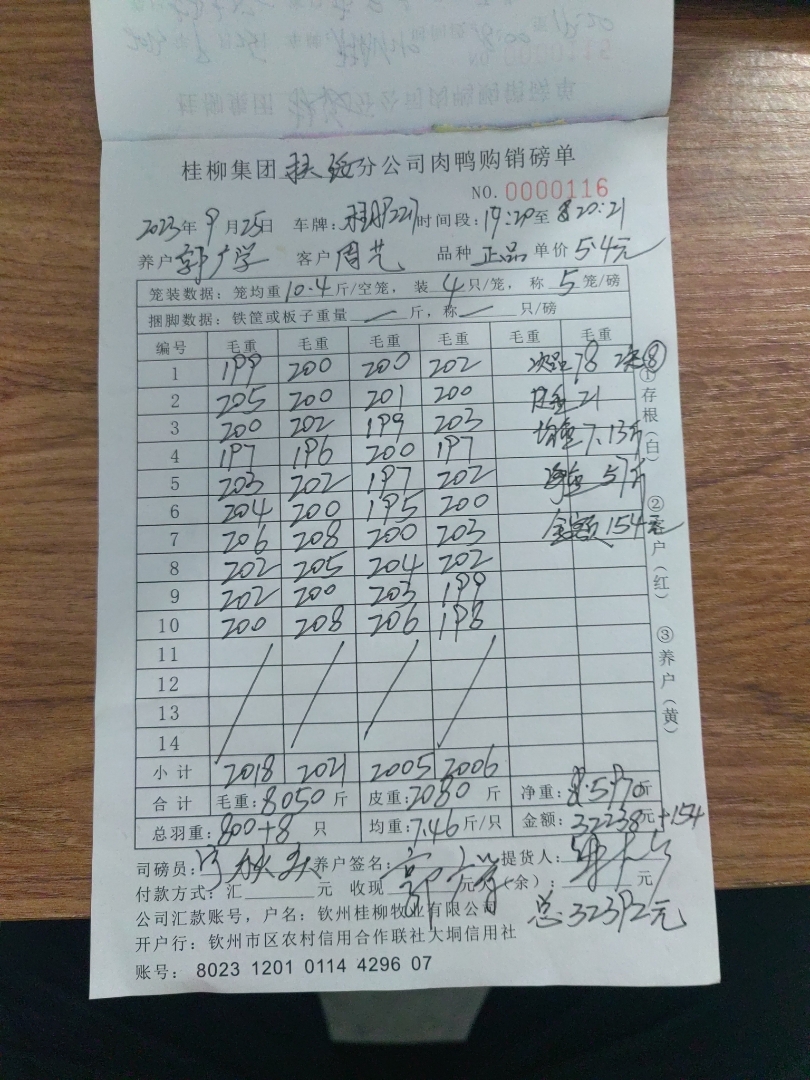 桂柳集团 分公司肉鸭购销磅单
NO.0000116
2023年9月25日 车牌: 时间段:19:20至 20:21
养户 广学 客户 周艺 品种 正品 单价 5.4元
笼装数据:笼均重10.4斤/空笼,装4只/笼,称5笼/磅
捆脚数据:铁筐或板子重量 — 斤,称 — 只/磅
编号 毛重 毛重 毛重 毛重 毛重 毛重
1 199 200 200 202 次品 78 ⑧
2 205 200 201 200 皮重 21
3 200 202 199 203 均重 7.13斤
4 197 196 200 197
5 203 202 197 202 净重 57斤
6 204 200 195 200
7 206 208 200 203 金额 154元
8 202 205 204 202
9 202 200 203 199
10 200 208 206 198
11
12
13
14
小计 2018 2021 2005 2006
合计 毛重:8050斤 皮重:2080斤 净重:5970斤
总羽重:800+8 只 均重:7.46斤/只 金额:32238元+154
司磅员: 养户签名: 提货人:
付款方式:汇 元 收现 元 欠(余): 元
公司汇款账号,户名:钦州桂柳牧业有限公司
总32392元
开户行:钦州市区农村信用合作联社大垌信用社
账号: 8023 1201 0114 4296 07
①存根(白) ②客户(红) ③养户(黄)